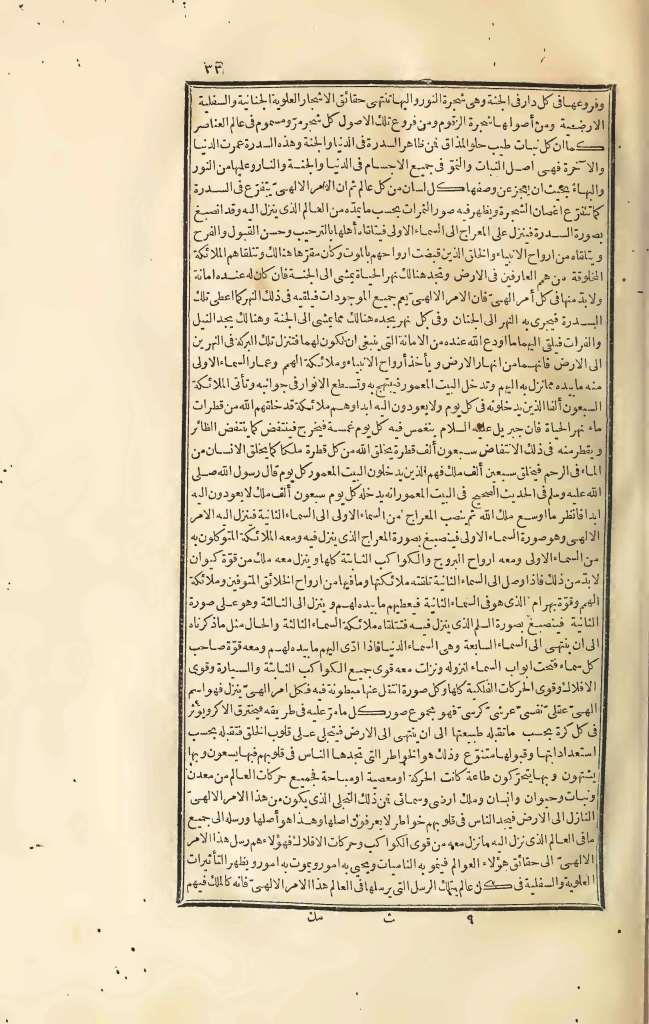 ٣٣
وفروعها في كل دار في الجنة وهي شجرة النور واليها تنتهي حقائق الاشجار العلوية الجنانية والسفلية
الارضية ومن أصولها شجرة الزقوم ومن فروع تلك الاصول كل شجر مر ومسموم في عالم العناصر
كما ان كل نبات طيب حلو المذاق فمن ظاهر السدرة في الدنيا والجنة وهذه السدرة عمرت الدنيا
والآخرة فهي أصل النبات والنمو في جميع الاجسام في الدنيا والجنة والنار وعليها من النور
والبهاء بحيث ان يعجز عن وصفها كل لسان من كل عالم ثم ان الامر الالهي يتفرع في السدرة
كما تتفرع اغصان الشجرة ويظهر فيه صور الثمرات بحسب ما يمده من العالم الذي ينزل اليه وقد انصبغ
بصورة السدرة فينزل على المعراج الى السماء الاولى فيتلقاه أهلها بالترحيب وحسن القبول والفرح
ويتلقاه من ارواح الانبياء والخلق الذين قبضت ارواحهم بالموت وكان مقرها هنالك وتتلقاهم الملائكة
المخلوقة من همم العارفين في الارض وتجد هنالك نهر الحياة يمشى الى الجنة فان كان له عنده امانة
ولا بد منها في كل أمر الهي فان الامر الالهي يعم جميع الموجودات فيلقيه في ذلك النهر كما اعطى تلك
السدرة فيجرى به النهر الى الجنان وفي كل نهر يجده هنالك مما يمشي الى الجنة وهنالك يجد النيل
والفرات فيلقي اليهما ما اودع الله عنده من الامانة التي ينبغي ان تكون لهما فتنزل تلك البركة في النهرين
الى الارض فانهما من انهار الارض ويأخذ أرواح الانبياء وملائكة الهمم وعمار السماء الاولى
منه ما بيده مما نزل به اليهم وتدخل البيت المعمور فيبتهج به وتسطع الانوار في جوانبه وتأتي الملائكة
السبعون ألفا الذين يدخلونه في كل يوم ولا يعودون اليه ابدا وهم ملائكة قد خلقهم الله من قطرات
ماء نهر الحياة فان جبريل عليه السلام ينغمس فيه كل يوم غمسة فيخرج فينتفض كما ينتفض الطائر
ويقطر منه في ذلك الانتفاض سبعون ألف قطرة يخلق الله من كل قطرة ملكا كما يخلق الانسان من
الماء في الرحم فيخلق سبعين ألف ملك فهم الذين يدخلون البيت المعمور كل يوم قال رسول الله صلى
الله عليه وسلم في الحديث الصحيح في البيت المعمور انه يدخله كل يوم سبعون ألف ملك لا يعودون اليه
ابدا فانظر ما اوسع ملك الله ثم ينصب المعراج من السماء الاولى الى السماء الثانية فينزل اليه الامر
الالهي وهو صورة السماء الاولى فينصبغ بصورة المعراج الذي ينزل فيه ومعه الملائكة المتوكلون به
من السماء الاولى ومعه ارواح البروج والكواكب الثابتة كلها وينزل معه ملك من قوة كيوان
لا بد من ذلك فاذا وصل الى السماء الثانية تلقته ملائكتها وما فيها من ارواح الخلائق المتوفين وملائكة
الهمم وقوة بهرام الذي هو في السماء الثانية فيعطيهم ما بيده لهم وينزل الى الثالثة وهو على صورة
الثانية فينصبغ بصورة السلم الذي ينزل فيه فتتلقاه ملائكة السماء الثالثة والحال مثل ما ذكرناه
الى ان ينتهي الى السماء السابعة وهي السماء الدنيا فاذا ادى اليهم ما بيده لهم ومعه قوة صاحب
كل سماء فتحت ابواب السماء لنزوله ونزلت معه قوى جميع الكواكب الثابتة والسيارة وقوى
الافلاك وقوى الحركات الفلكية كلها وكل صورة انتقل عنها مبطونة فيه فكل امر الهي ينزل فهو اسم
الهي عقلي نفسي عرشي كرسي فهو مجموع صور كل ما مر عليه في طريقه فيخترق الاكر ويؤثر
في كل كرة بحسب ما تقبله طبيعتها الى ان ينتهي الى الارض فيتجلى على قلوب الخلق فتقبله بحسب
استعداداتها وقبولها متنوع وذلك هو الخواطر التي تجدها الناس في قلوبهم فبها يسعون وبها
يشتهون وبها يتحركون طاعة كانت الحركة او معصية او مباحة فجميع حركات العالم من معدن
ونبات وحيوان وانسان وملك ارضى وسمائى فمن ذلك التجلي الذي يكون من هذا الامر الالهي
النازل الى الارض فيجد الناس في قلوبهم خواطر لا يعرفون اصلها وهذا هو أصلها ورسله الى جميع
ما في العالم الذي نزل اليه ما نزل معه من قوى الكواكب وحركات الافلاك فهؤلاء هم رسل هذا الامر
الالهي الى حقائق هؤلاء العوالم فينمو به الناميات ويحيى به امور ويموت به امور ويظهر التأثيرات
العلوية والسفلية في كل عالم بتلك الرسل التي يرسلها في العالم هذا الامر الالهي فانه كالملك فيهم
٩ ث مك